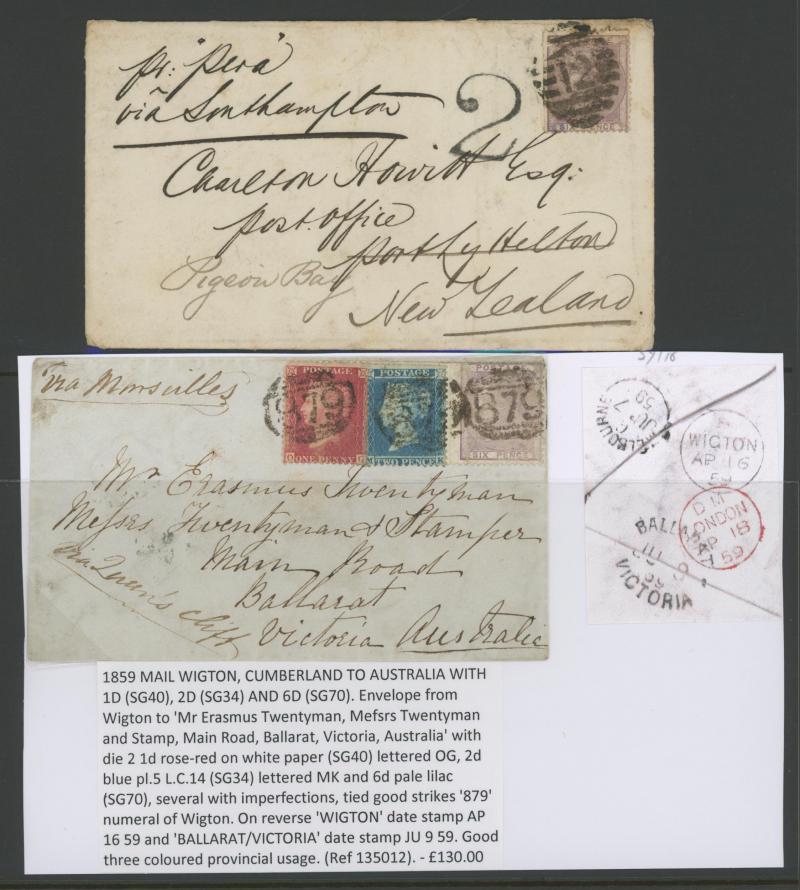 pr: "Pera"
via Southampton
2
12
SIX PENCE
Charlton Howitt Esq:
Post. Office
Port Ly Helton
Pigeon Bay
New Zealand
59/16
via Marseilles
879
879
POSTAGE
POSTAGE
O ONE PENNY G
M TWO PENCE
SIX PENCE
Mr Erasmus Twentyman
Messrs Twentyman & Stamper
Main Road
Ballarat
Victoria Australia
via Queen's Cliff
LBOURNE
JU 7
59
WIGTON
AP 16
59
LONDON
AP 18
59
BALLARA
JU 9
59
VICTORIA
1859 MAIL WIGTON, CUMBERLAND TO AUSTRALIA WITH
1D (SG40), 2D (SG34) AND 6D (SG70). Envelope from
Wigton to 'Mr Erasmus Twentyman, Mefsrs Twentyman
and Stamp, Main Road, Ballarat, Victoria, Australia' with
die 2 1d rose-red on white paper (SG40) lettered OG, 2d
blue pl.5 L.C.14 (SG34) lettered MK and 6d pale lilac
(SG70), several with imperfections, tied good strikes '879'
numeral of Wigton. On reverse 'WIGTON' date stamp AP
16 59 and 'BALLARAT/VICTORIA' date stamp JU 9 59. Good
three coloured provincial usage. (Ref 135012). - £130.00